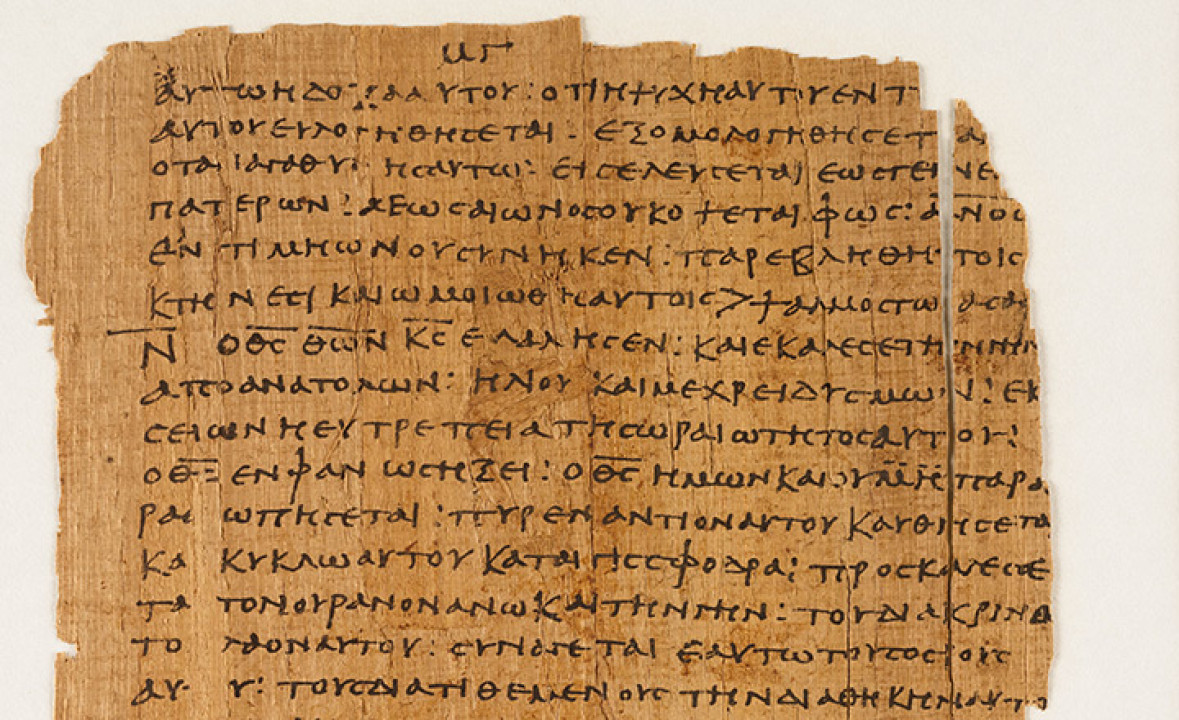 μγ
αυτωηδοξααυτου:οτιηψυχηαυτουεντ
αυτουευλογηθηϲεται:εξομολογηθηϲετα
οταναγαθυνηϲαυτωι:ειϲελευϲεταιεωϲγεινε
πατερων:αεωϲαιωνοϲουκοψεταιφωϲ:α̅ν̅ο̅ϲ̅
εντιμηωνουϲυνηκεν:παρεβληθητοιϲ
κτηνεϲικαιωμοιωθηαυτοιϲ>ψαλμοϲτωαϲα
ν̅ οθ̅ϲ̅θ̅ω̅ν̅κ̅ϲ̅ελαληϲεν:καιεκαλεϲετηνγην
αποανατολων:ηλιουκαιμεχρειδυϲμων:εκ
ϲειωνηευτρεπειατηϲωραιωτητοϲαυτου:
οθ̅ϲ̅ενφανωϲηξει:οθ̅ϲ̅ημωνκαιουμηπαρα
ραϲιωπηϲεται:πυρεναντιοναυτουκαυθηϲετα
κακυκλωαυτουκαταιγιϲϲφοδρα:προϲκαλεϲετε
τατονουρανονανωκαιτηνγην:τουδιακρινα
τολαοναυτου:ϲυναγεταιεαυτωτουϲοϲιουϲ
αυτου:τουϲδιατιθεμενουϲτηνδιαθηκηναυτο